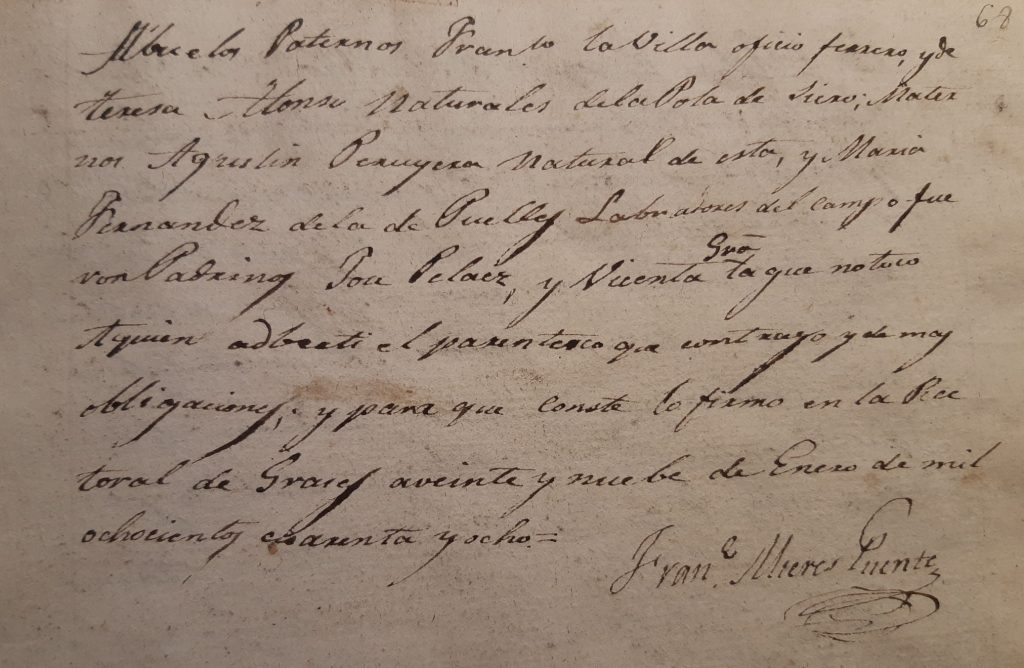 68
Abuelos Paternos Franso la Villa oficio ferrero, y de
teresa Alonso Naturales de la Pola de Siero; Mater
nos Agustin Peruyera Natural de esta, y Maria
Fernandez de la de Puelles Labradores del campo fue
ron Padrinos Jose Pelaez, y Vicenta ta que no toco
Aquien adberti el parentesco que contrajo y de mas
obligaciones; y para que conste lo firmo en la Rec
toral de Grases a veinte y nuebe de Enero de mil
ochocientos cuarenta y ocho=
Fran.co Mieres Puente